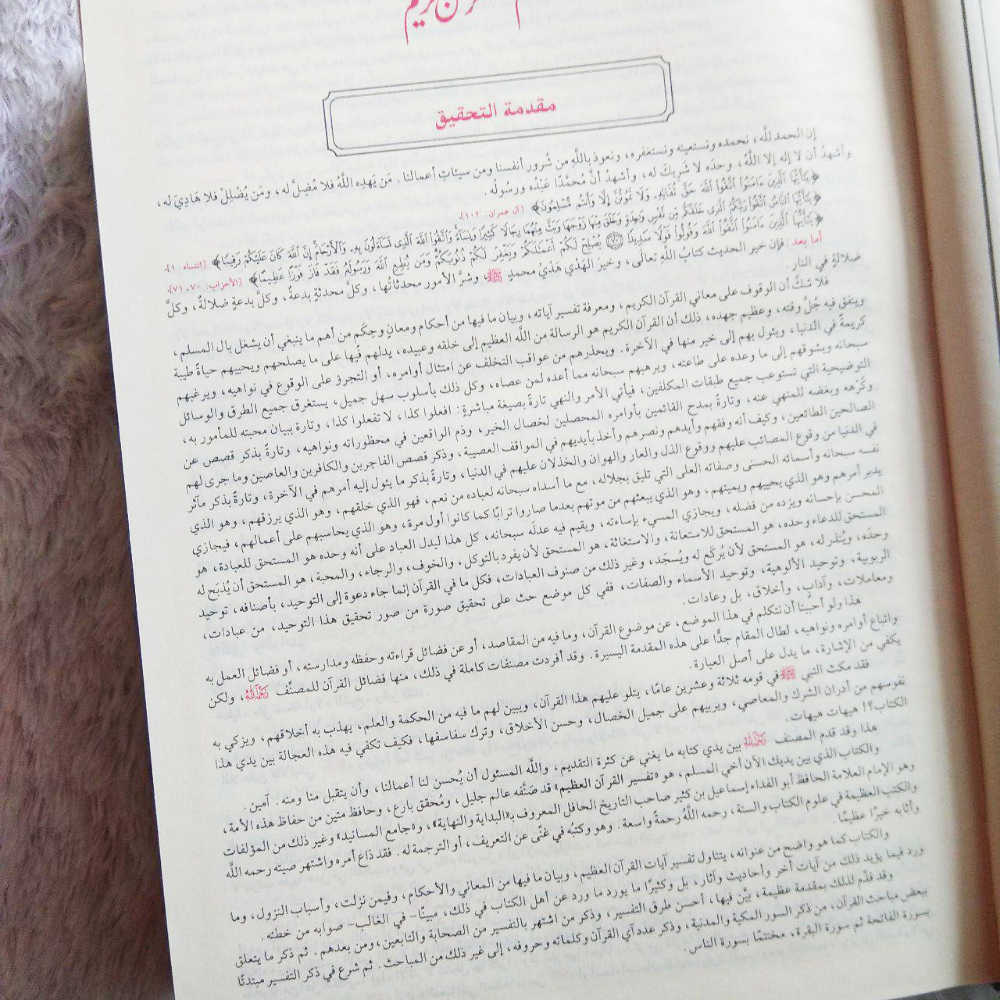 مقدمة التحقيق
إن الحمد للَّه، نحمده ونستعينه ونستغفره، ونعوذ باللَّهِ من شُرور أنفسنا ومن سيئاتِ أعمالنا. مَن يَهدِه اللَّهُ فلا مُضِلَّ له، ومَن يُضْلِلْ فلا هَادِيَ له،
وأشهدُ أن لا إله إلا اللَّهُ، وحدَه لا شَريكَ له، وأشهدُ أنَّ مُحمَّدًا عَبْدُه ورسُولُه.
﴿يَٰٓأَيُّهَا ٱلَّذِينَ ءَامَنُوا۟ ٱتَّقُوا۟ ٱللَّهَ حَقَّ تُقَاتِهِۦ وَلَا تَمُوتُنَّ إِلَّا وَأَنتُم مُّسْلِمُونَ﴾ [آل عمران: ١٠٢].
﴿يَٰٓأَيُّهَا ٱلنَّاسُ ٱتَّقُوا۟ رَبَّكُمُ ٱلَّذِى خَلَقَكُم مِّن نَّفْسٍ وَٰحِدَةٍ وَخَلَقَ مِنْهَا زَوْجَهَا وَبَثَّ مِنْهُمَا رِجَالًا كَثِيرًا وَنِسَآءً وَٱتَّقُوا۟ ٱللَّهَ ٱلَّذِى تَسَآءَلُونَ بِهِۦ وَٱلْأَرْحَامَ إِنَّ ٱللَّهَ كَانَ عَلَيْكُمْ رَقِيبًا﴾ [النساء: ١].
﴿يَٰٓأَيُّهَا ٱلَّذِينَ ءَامَنُوا۟ ٱتَّقُوا۟ ٱللَّهَ وَقُولُوا۟ قَوْلًا سَدِيدًا ۝ يُصْلِحْ لَكُمْ أَعْمَٰلَكُمْ وَيَغْفِرْ لَكُمْ ذُنُوبَكُمْ وَمَن يُطِعِ ٱللَّهَ وَرَسُولَهُۥ فَقَدْ فَازَ فَوْزًا عَظِيمًا﴾ [الأحزاب: ٧٠-٧١].
أما بعد: فإن خير الحديث كتابُ اللَّه تعالى، وخيرَ الهَدْي هَدْيُ محمدٍ ﷺ، وشرَّ الأمور محدثاتُها، وكلَّ محدثةٍ بدعةٌ، وكلَّ بدعةٍ ضلالةٌ، وكلَّ
ضلالةٍ في النار.
فلا شكَّ أن الوقوف على معاني القرآن الكريم، ومعرفة تفسير آياته، وبيان ما فيها من أحكام ومعانٍ وحِكَم من أهم ما ينبغي أن يشغل بال المسلم،
وينفق فيه جُلَّ وقته، وعظيم جهده، ذلك أن القرآن الكريم هو الرسالة من اللَّه العظيم إلى خلقه وعبيده، يدلهم فيها على ما يصلحهم ويحييهم حياةً طيبة
كريمةً في الدنيا، ويئول بهم إلى خير منها في الآخرة. ويحذرهم من عواقب التخلف عن امتثال أوامره، أو التجرؤ على الوقوع في نواهيه، ويرغبهم
سبحانه ويشوقهم إلى ما وعده على طاعته، ويرهبهم سبحانه مما أعده لمن عصاه، وكل ذلك بأسلوب سهل جميل، يستغرق جميع الطرق والوسائل
التوضيحية التي تستوعب جميع طبقات المكلفين، فيأتي الأمر والنهي تارةً بصيغة مباشرةٍ: افعلوا كذا، لا تفعلوا كذا، وتارة ببيان محبته للمأمور به،
وكُرْهه وبغضه للمنهي عنه، وتارةً بمدح القائمين بأوامره المحصلين لخصال الخير، وذم الواقعين في محظوراته ونواهيه، وتارةً بذكر قصص عن
الصالحين الطائعين، وكيف أنه وفقهم وأيدهم ونصرهم وأخذ بأيديهم في المواقف العصيبة، وذكر قصص الفاجرين والكافرين والعاصين وما جرى لهم
في الدنيا من وقوع المصائب عليهم ووقوع الذل والعار والهوان والخذلان عليهم في الدنيا، وتارةً بذكر ما يئول إليه أمرهم في الآخرة، وتارةً بذكر مآثر
نفسه سبحانه وأسمائه الحسنى وصفاته العلى التي تليق بجلاله، مع ما أسداه سبحانه لعباده من نعم، فهو الذي خلقهم، وهو الذي يرزقهم، وهو الذي
يدبر أمرهم وهو الذي يحييهم ويميتهم، وهو الذي يبعثهم من موتهم بعدما صاروا ترابًا كما كانوا أول مرة، وهو الذي يحاسبهم على أعمالهم، فيجازي
المحسن بإحسانه ويزده من فضله، ويجازي المسيء بإساءته، ويقيم فيه عدلَه سبحانه، كل هذا ليدل العباد على أنه وحده هو المستحق للعبادة، هو
المستحق للدعاء وحده، هو المستحق للاستعانة، والاستغاثة، هو المستحق لأن يفرد بالتوكل. والخوف، والرجاء، والمحبة، هو المستحق أن يُذبَح له
وحدَه، ويُنذر له، هو المستحق لأن يُركَع له ويُسجَد، وغير ذلك من صنوف العبادات، فكل ما في القرآن إنما جاء دعوة إلى التوحيد، بأصنافه، توحيد
الربوبية، وتوحيد الألوهية، وتوحيد الأسماء والصفات، ففي كل موضع حث على تحقيق صورة من صور تحقيق هذا التوحيد، من عبادات،
ومعاملات، وآداب، وأخلاق، بل وعادات.
هذا ولو أحببنا أن نتكلم في هذا الموضع، عن موضوع القرآن، وما فيه من المقاصد، أو عن فضائل قراءته وحفظه ومدارسته، أو فضائل العمل به
واتباع أوامره ونواهيه، لطال المقام جدًّا على هذه المقدمة اليسيرة. وقد أفردت مصنفات كاملة في ذلك، منها فضائل القرآن للمصنِّف رحمه الله، ولكن
يكفي من الإشارة، ما يدل على أصل العبارة.
فقد مكث النبي ﷺ في قومه ثلاثة وعشرين عامًا، يتلو عليهم هذا القرآن، ويبين لهم ما فيه من الحكمة والعلم، يهذب به أخلاقهم، ويزكي به
نفوسهم من أدران الشرك والمعاصي، ويربيهم على جميل الخصال، وحسن الأخلاق، وترك سفاسفها، فكيف تكفي فيه هذه العجالة بين يدي هذا
الكتاب؟! هيهات هيهات.
هذا وقد قدم المصنف رحمه الله بين يدي كتابه ما يغني عن كثرة التقديم، واللَّه المسئول أن يُحسن لنا أعمالنا، وأن يتقبل منا ومنه. آمين.
والكتاب الذي بين يديك الآن أخي المسلم، هو «تفسير القرآن العظيم» قد صَنَّفه عالم جليل، ومُحقق بارع، وحافظ متين من حفاظ هذه الأمة،
وهو الإمام العلامة الحافظ أبو الفداء إسماعيل بن كثير صاحب التاريخ الحافل المعروف بـ«البداية والنهاية»، و«جامع المسانيد» وغير ذلك من المؤلفات
والكتب العظيمة في علوم الكتاب والسنة، رحمه اللَّهُ رحمةً واسعة. وهو وكتبُه في غنًى عن التعريف، أو الترجمة له. فقد ذاع أمره واشتهر صيته رحمه اللَّه
وأثابه خيرًا عظيمًا
والكتاب كما هو واضح من عنوانه، يتناول تفسير آيات القرآن العظيم، وبيان ما فيها من المعاني والأحكام، وفيمن نزلت، وأسباب النزول، وما
ورد فيما يؤيد ذلك من آيات أخر وأحاديث وآثار، بل وكثيرًا ما يورد ما ورد عن أهل الكتاب في ذلك، مبينًا- في الغالب- صوابه من خطئه.
وقد قدَّم لذلك بمقدمة عظيمة، بيَّن فيها، أحسن طرق التفسير، وذكر من اشتهر بالتفسير من الصحابة والتابعين، ومن بعدهم. ثم ذكر ما يتعلق
ببعض مباحث القرآن، من ذكر السور المكية والمدنية، وذكر عدد آي القرآن وكلماته وحروفه، إلى غير ذلك من المباحث. ثم شرع في ذكر التفسير مبتدئًا
بسورة الفاتحة ثم سورة البقرة، مختتمًا بسورة الناس.